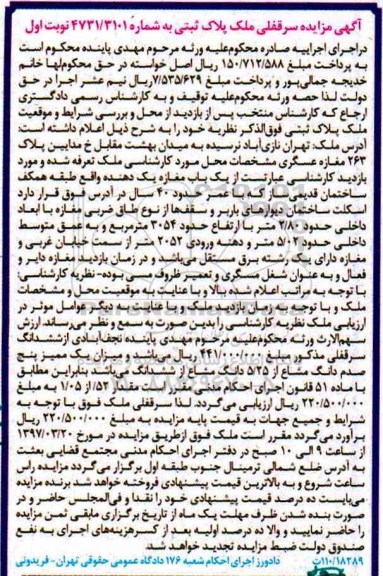 آگهی مزایده سرقفلی ملک پلاک ثبتی به شماره ۴۷۳۱/۳۱۰۱ نوبت اول
دراجرای اجراییه صادره محکوم‌علیه ورثه مرحوم مهدی پاینده محکوم است
به پرداخت مبلغ ۱۵۰/۷۱۲/۵۸۸ ریال اصل خواسته در حق محکوم‌لها خانم
خدیجه جمالی‌پور و پرداخت مبلغ ۷/۵۳۵/۶۲۹ریال نیم عشر اجرا در حق
دولت لذا حصه ورثه محکوم‌علیه توقیف و به کارشناس رسمی دادگستری
ارجاع که کارشناس منتخب پس از بازدید از محل و بررسی شرایط و موقعیت
ملک پلاک ثبتی فوق‌الذکر نظریه خود را به شرح ذیل اعلام داشته است:
آدرس ملک: تهران نازی‌آباد نرسیده به میدان بهشت مقابل خ مداین پلاک
۲۶۳ مغازه عسگری مشخصات محل مورد کارشناسی ملک تعرفه شده و مورد
بازدید کارشناسی عبارتست از یک باب مغازه یک دهنده واقع طبقه همکف
ساختمان قدیمی که با عمر حدود ۴۰ سال در آدرس فوق قرار دارد
اسکلت ساختمان دیوارهای باربر و سقف‌ها از نوع طاق ضربی مغازه با ابعاد
داخلی حدود ۲/۸۰ متر با ارتفاع حدود ۳۰۵۴ مترمربع و به عمق متوسط
داخلی حدود ۵/۰۲ متر و دهنه ورودی ۲۰۵۲ متر از سمت خیابان غربی و
مغازه دارای یک رشته برق مستقل می‌باشد و در زمان بازدید مغازه دایر و
فعال و به عنوان شغل مسگری و تعمیر ظروف مسی بوده- نظریه کارشناسی:
با توجه به مراتب اعلام شده بالا و با عنایت به موقعیت محل و مشخصات
ملک و با توجه به زمان بازدید ملک و با عنایت به دیگر عوامل موثر در
ارزیابی ملک نظریه کارشناسی را بدین صورت به سمع و نظر می‌رساند. ارزش
سهم‌الارث ورثه محکوم‌علیه مرحوم مهدی پاینده نجف‌آبادی ازششدانگ
سرقفلی مذکور مبلغ ۴۴۱/۰۰۰/۰۰۰ ریال می‌باشد و میزان یک ممیز پنج
صدم دانگ مشاع از ۵/۲۵ دانگ مشاع از ششدانگ می‌باشد بنابراین مطابق
با ماده ۵۱ قانون اجرای احکام مدنی مقدار ثمت مقدار ۵۲/ از ۱/۰۵ به مبلغ
۲۲۰/۵۰۰/۰۰۰ ریال ارزیابی می‌گردد. لذا سرقفلی ملک فوق با توجه به
شرایط و جمیع جهات به قیمت پایه مزایده به مبلغ ۲۲۰/۵۰۰/۰۰۰ ریال
برآورد می‌گردد مقرر است ملک فوق ازطریق مزایده در مورخ ۱۳۹۷/۰۳/۲۰
از ساعت ۹ الی ۱۰ صبح در دفتر اجرای احکام مدنی مجتمع قضایی بعثت
به آدرس ضلع شمالی ترمینال جنوب طبقه اول برگزار می‌گردد مزایده راس
ساعت شروع و به بالاترین قیمت پیشنهادی فروخته خواهد شد برنده مزایده
می‌بایست ده درصد قیمت پیشنهادی خود را نقدا و فی‌المجلس حاضر و در
صورت بنده شدن ظرف مهلت یک ماه از تاریخ برگزاری مابقی ثمن مزایده
را حاضر نمایید و والا ده درصد اولیه بعد از کسرهزینه‌های اجرای به نفع
صندوق دولت ضبط مزایده تجدید خواهد شد.
۱۱۰/۱۸۲۸۹ت دادورز اجرای احکام شعبه ۱۷۶ دادگاه عمومی حقوقی تهران- فریدونی